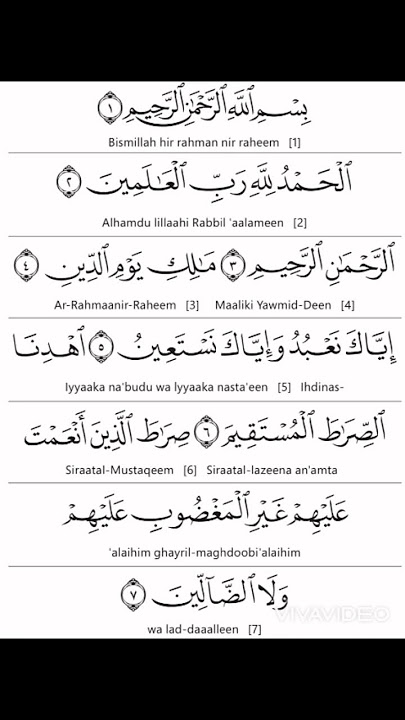 بِسْمِ ٱللَّهِ ٱلرَّحْمَٰنِ ٱلرَّحِيمِ ١
Bismillah hir rahman nir raheem [1]
ٱلْحَمْدُ لِلَّهِ رَبِّ ٱلْعَالَمِينَ ٢
Alhamdu lillaahi Rabbil 'aalameen [2]
ٱلرَّحْمَٰنِ ٱلرَّحِيمِ ٣ مَالِكِ يَوْمِ ٱلدِّينِ ٤
Ar-Rahmaanir-Raheem [3] Maaliki Yawmid-Deen [4]
إِيَّاكَ نَعْبُدُ وَإِيَّاكَ نَسْتَعِينُ ٥ ٱهْدِنَا
Iyyaaka na'budu wa lyyaaka nasta'een [5] Ihdinas-
ٱلصِّرَاطَ ٱلْمُسْتَقِيمَ ٦ صِرَاطَ ٱلَّذِينَ أَنْعَمْتَ
Siraatal-Mustaqeem [6] Siraatal-lazeena an'amta
عَلَيْهِمْ غَيْرِ ٱلْمَغْضُوبِ عَلَيْهِمْ
'alaihim ghayril-maghdoobi'alaihim
وَلَا ٱلضَّآلِّينَ ٧
VIVAVIDEO
wa lad-daaalleen [7]